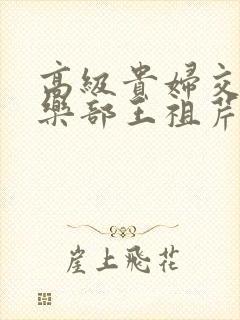 高級貴婦交
樂部王祖芹
崖上飛花